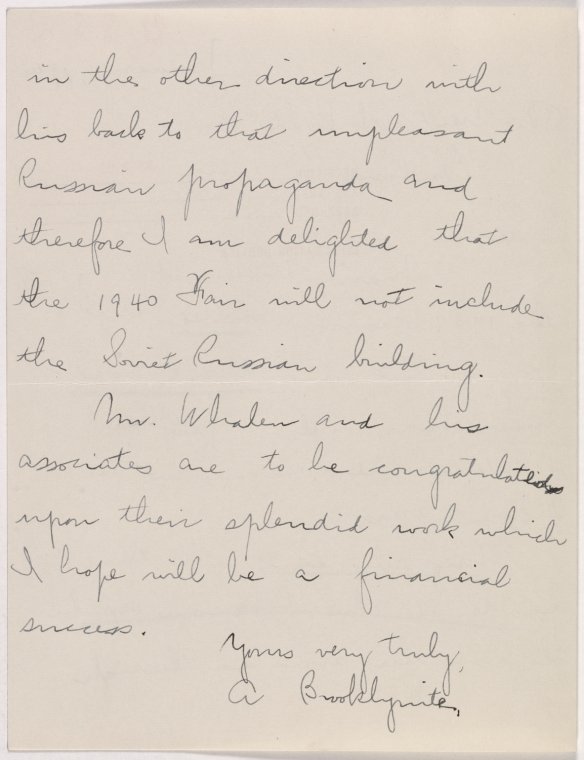 in the other direction with
his back to that unpleasant
Russian propaganda and
therefore I am delighted that
the 1940 Fair will not include
the Soviet Russian building.
Mr. Whalen and his
associates are to be congratulated
upon their splendid work which
I hope will be a financial
success.
Yours very truly,
A Brooklynite.